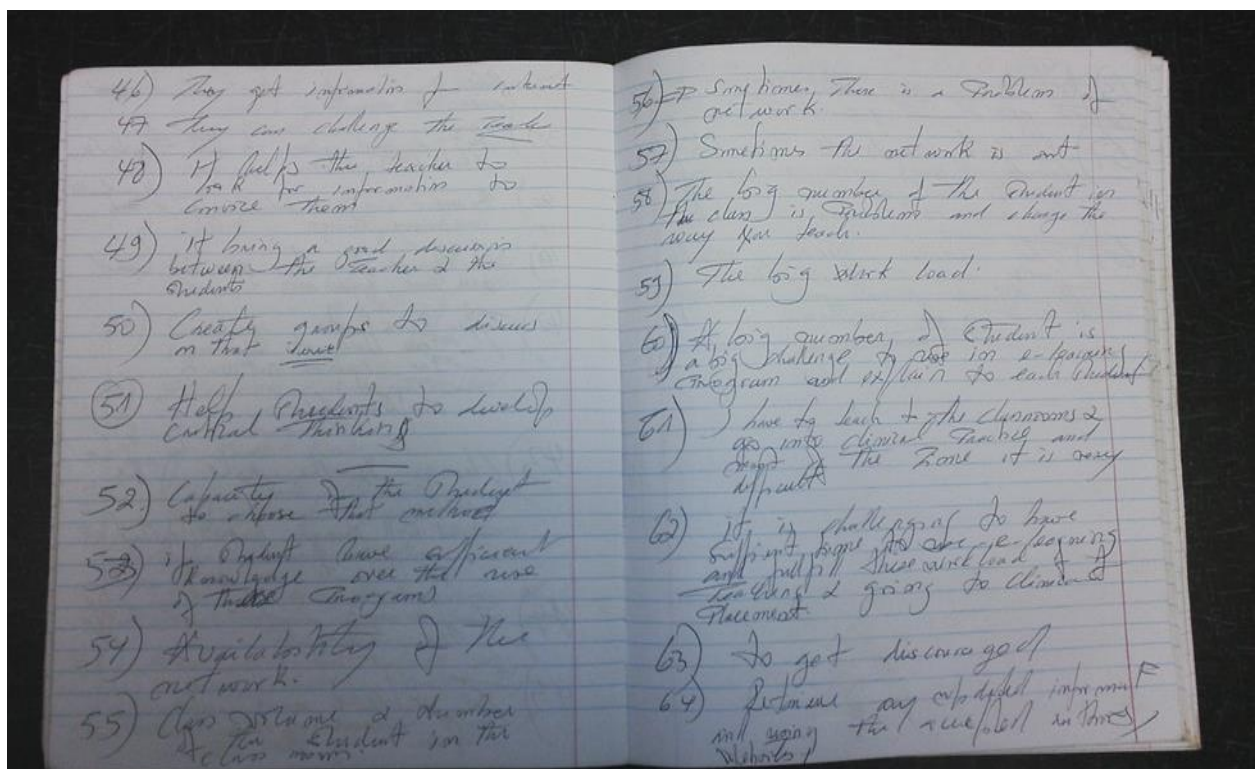 46) They get information f internet
47 They can challenge the
48) It helps the teacher to
look for information to
convice them
49) it bring a good discussion
between the Teacher & the
Students
50) Creaty groups to discuss
on that
51) Help Students to develop
Critical Thinking
52) Capacity of the Student
to chose that method
53) if Student have sufficient
knowledge over the use
of these Programs
54) Availability of the
net work.
55) Class volume & number
of the Student in the
class room
56) Sometimes, There is a Problem of
net work.
57) Sometimes the net work is not
58) The big number of the Student in
the class is Problem and change the
way you teach.
59) The big work load.
60) A big number of Student is
a big challenge to use in e-learning
Program and explain to each Student
61) I have to teach to the classrooms &
go into clinical Practice and
of the Time it is very
difficult
62) it is challenging to have
sufficient time to use e-learning
and fulfill these work load of
Teaching & going to clinical
Placement.
63) to get discouraged
64) Retrieve any updated informat
and using the
Websites